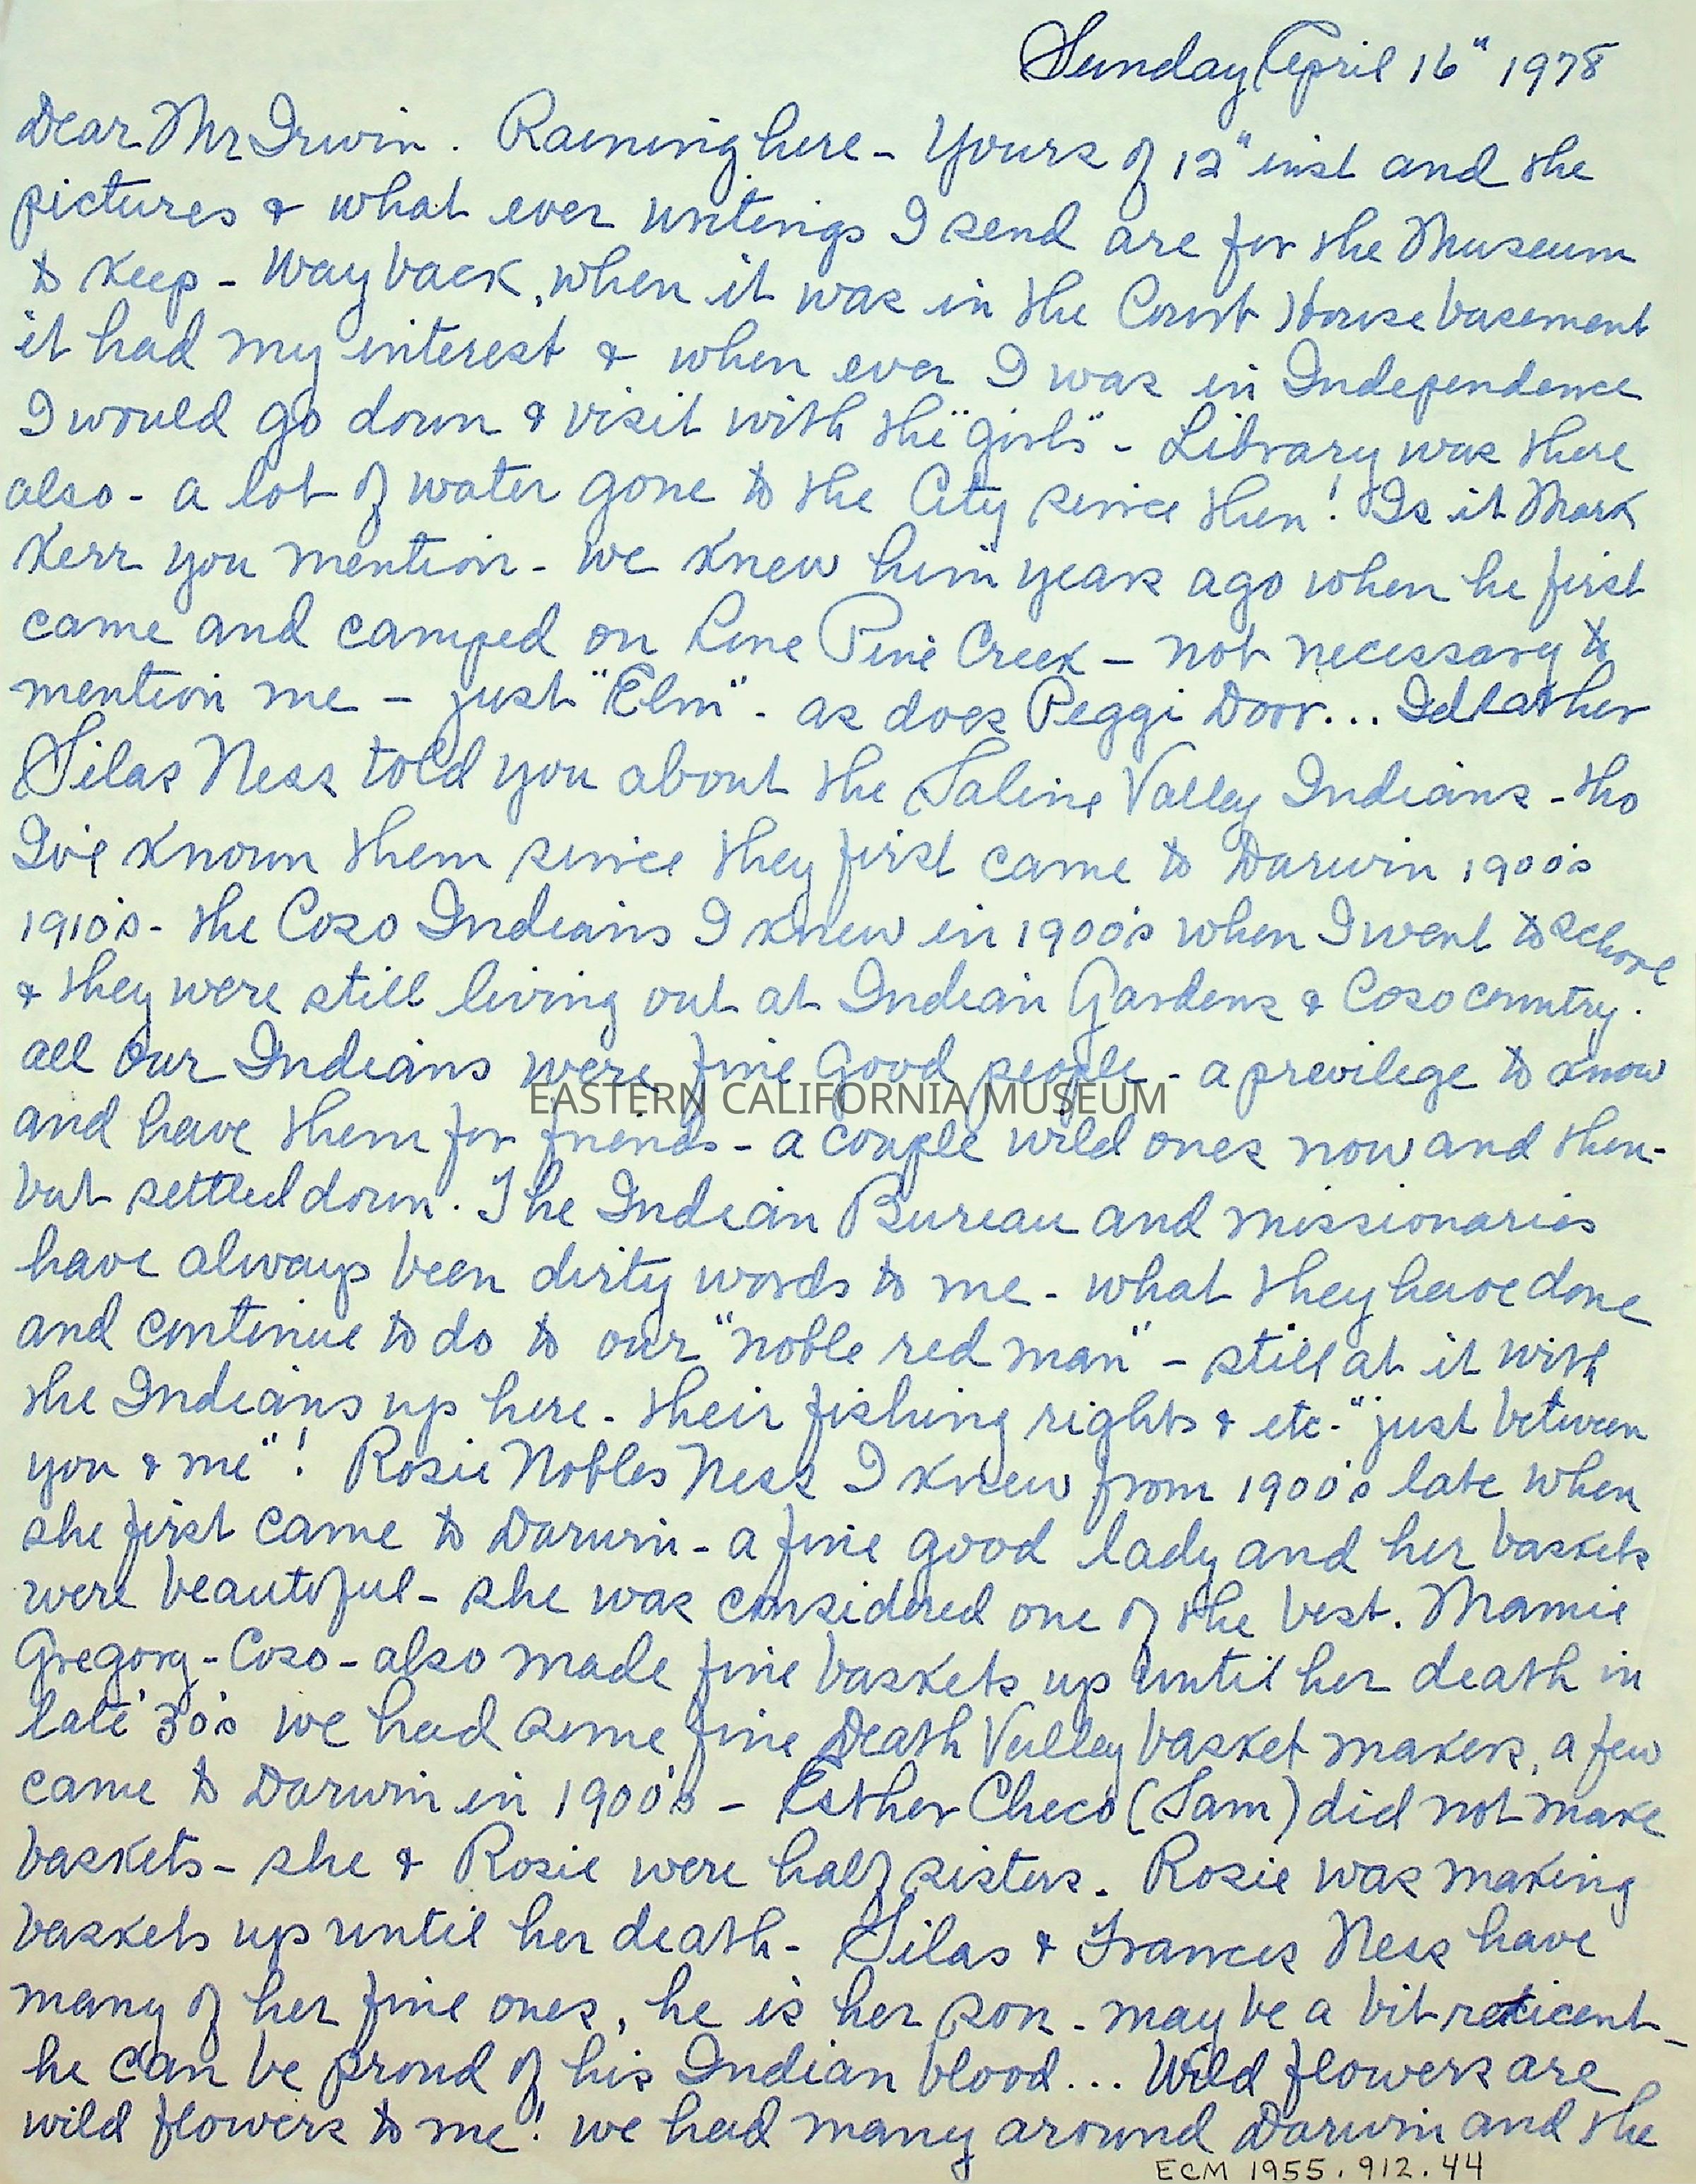 Sunday April 16" 1978
Dear Mr Irwin. Raining here - Yours of 12" inst and the
pictures & what ever writings I send are for the Museum
to keep - Way back, when it was in the Court House basement
it had my interest & when ever I was in Independence
I would go down & visit with the "girls" - Library was there
also - a lot of water gone to the City since then! Is it Mark
Kerr you mention - we knew him years ago when he first
came and camped on Lone Pine Creek - not necessary to
mention me - just "Elm" - as does Peggi Dorr... I'd rather
Silas Ness told you about the Saline Valley Indians - tho
I've known them since they first came to Darwin 1900's
1910's - the Coso Indians I knew in 1900's when I went to school
& they were still living out at Indian Gardens & Coso country.
all our Indians were fine good people - a previlege to know
EASTERN CALIFORNIA MUSEUM
and have them for friends - a couple wild ones now and then -
but settled down. The Indian Bureau and missionaries
have always been dirty words to me - what they have done
and continue to do to our "noble red man" - still at it with
the Indians up here - their fishing rights & etc - "just between
you & me"! Rosie Nobles Ness I knew from 1900's late when
she first came to Darwin - a fine good lady and her baskets
were beautiful - she was considered one of the best. Mamie
Gregory - Coso - also made fine baskets up until her death in
late '30's we had some fine Death Valley basket makers, a few
came to Darwin in 1900's - Esther Checo (Sam) did not make
baskets - she & Rosie were half sisters. Rosie was making
baskets up until her death - Silas & Frances Ness have
many of her fine ones, he is her son - may be a bit reticent -
he can be proud of his Indian blood... Wild flowers are
wild flowers to me! we had many around Darwin and the
ECM 1955.912.44